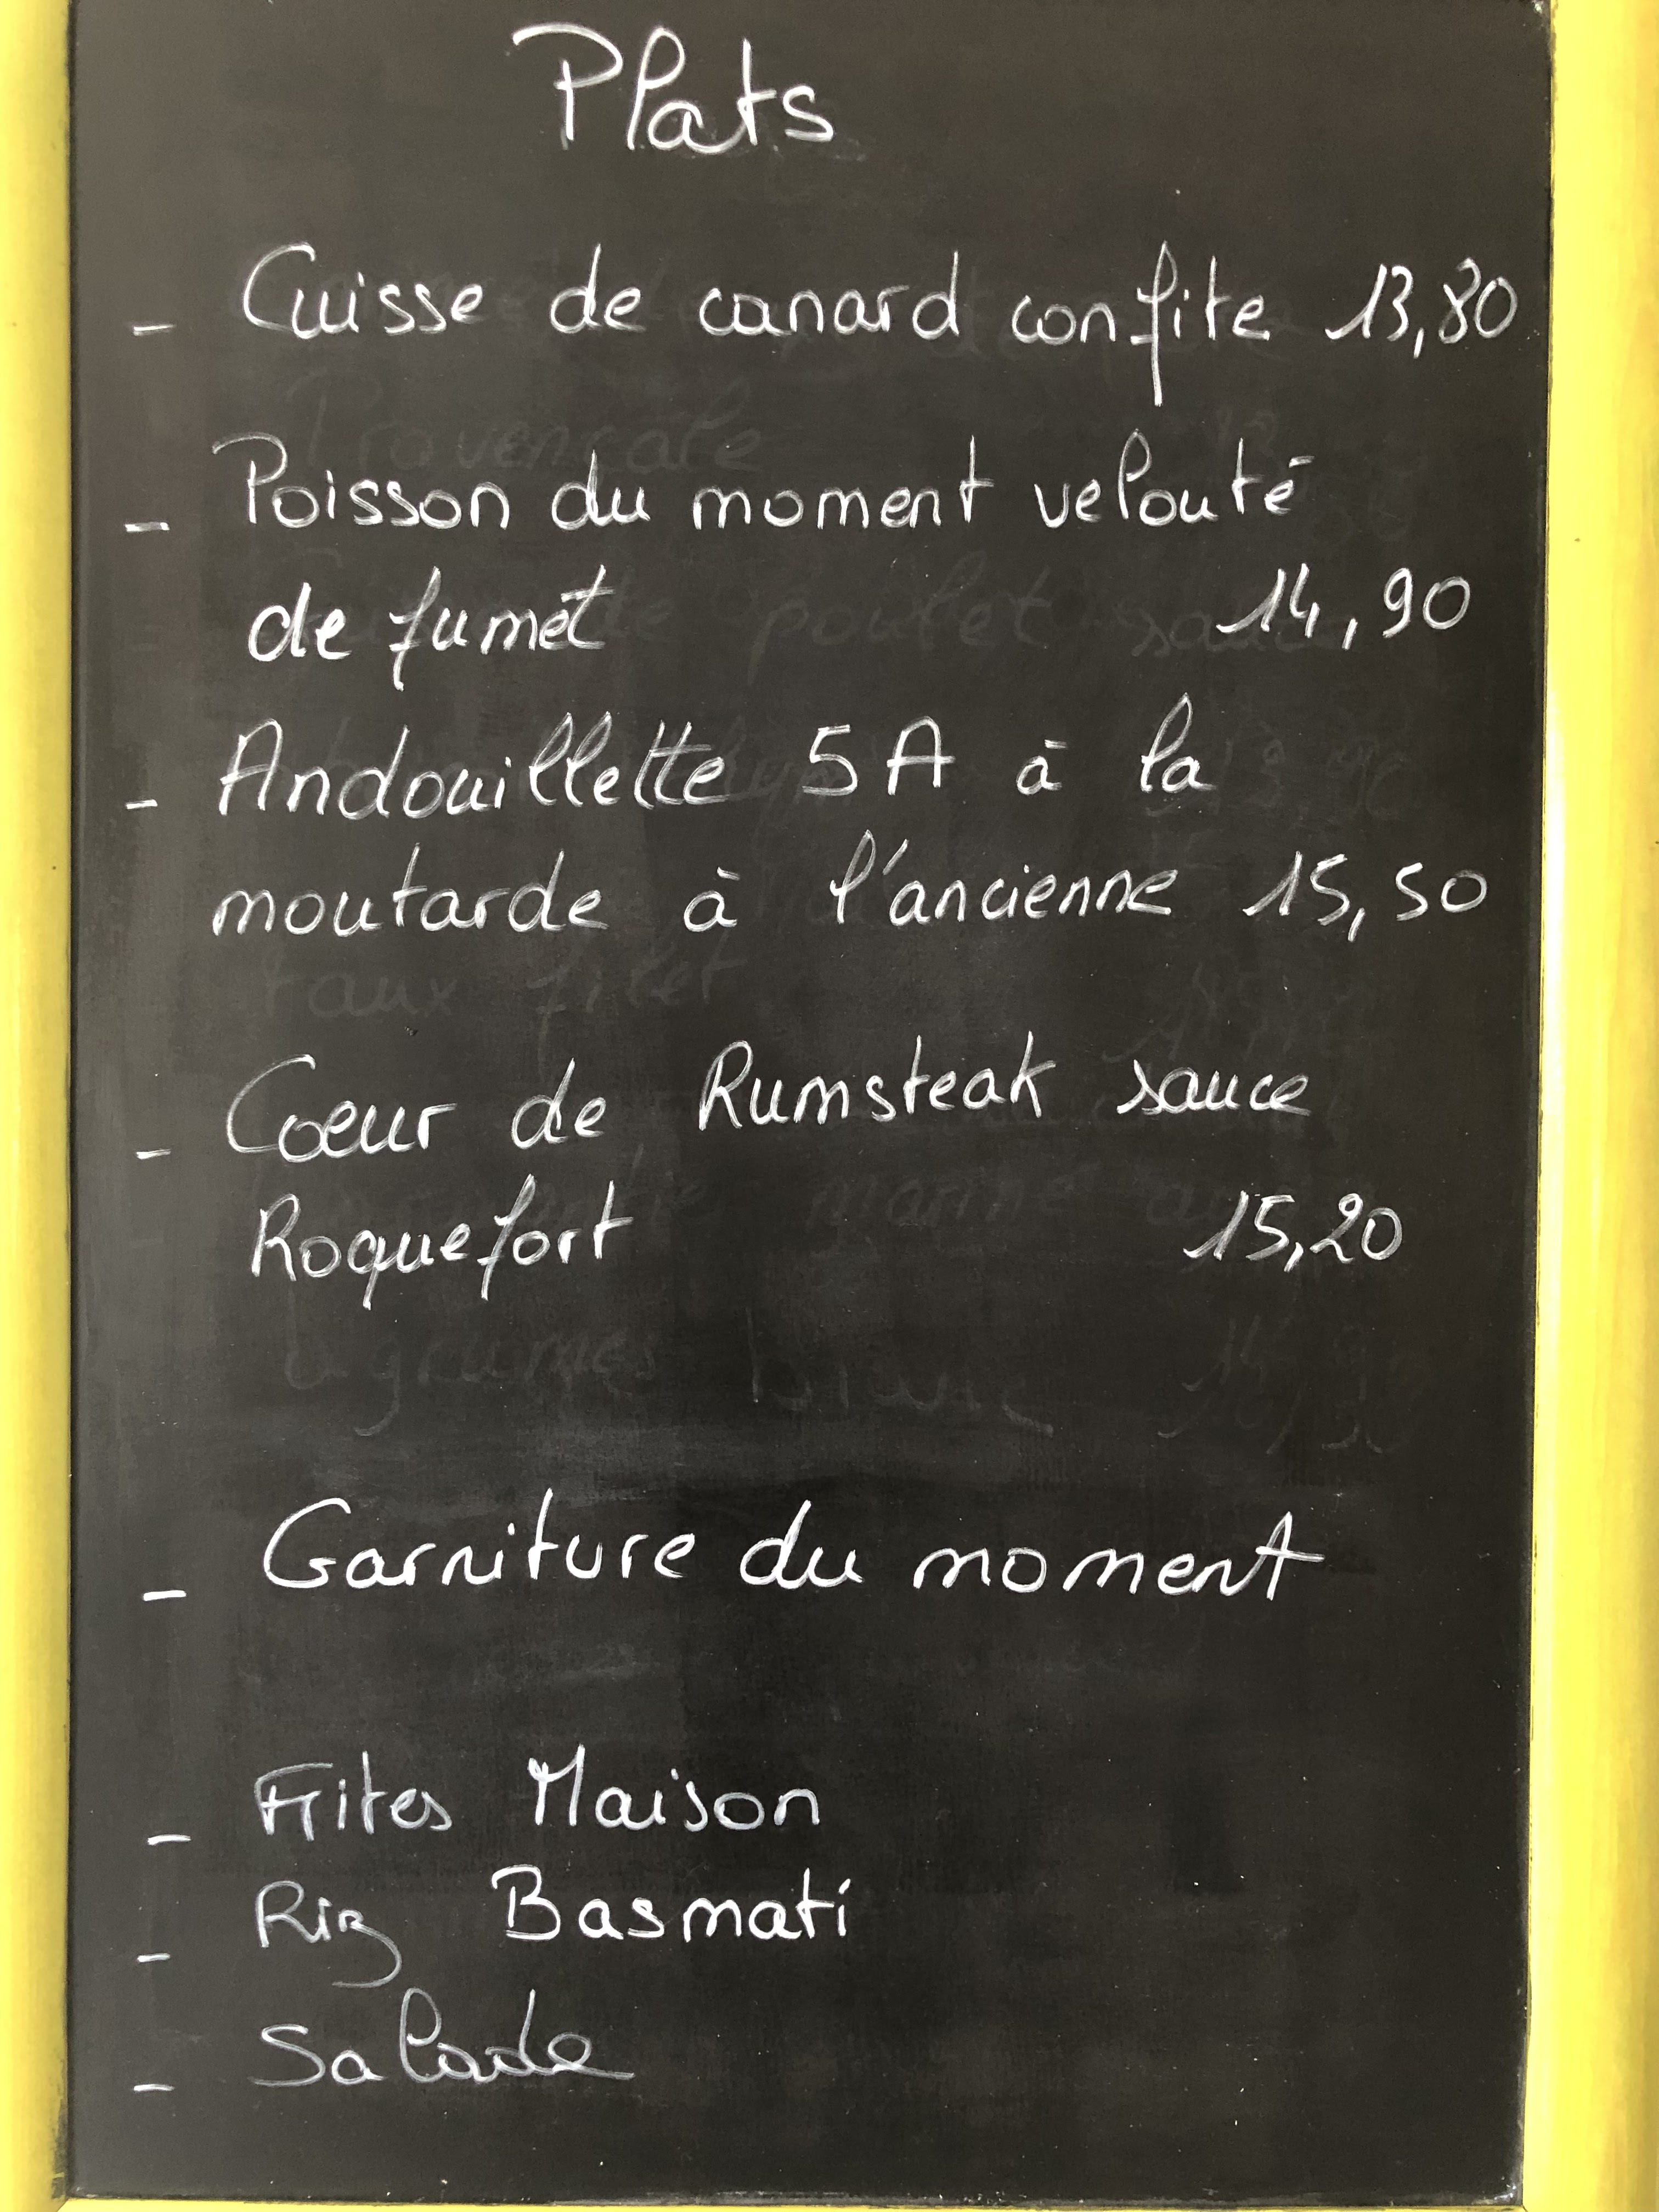 Plats
- Cuisse de canard confite 13,80
- Poisson du moment velouté
de fumet 14,90
- Andouillette 5A à la
moutarde à l'ancienne 15,50
- Coeur de Rumsteak sauce
Roquefort 15,20
- Garniture du moment
- Frites Maison
- Riz Basmati
- Salade